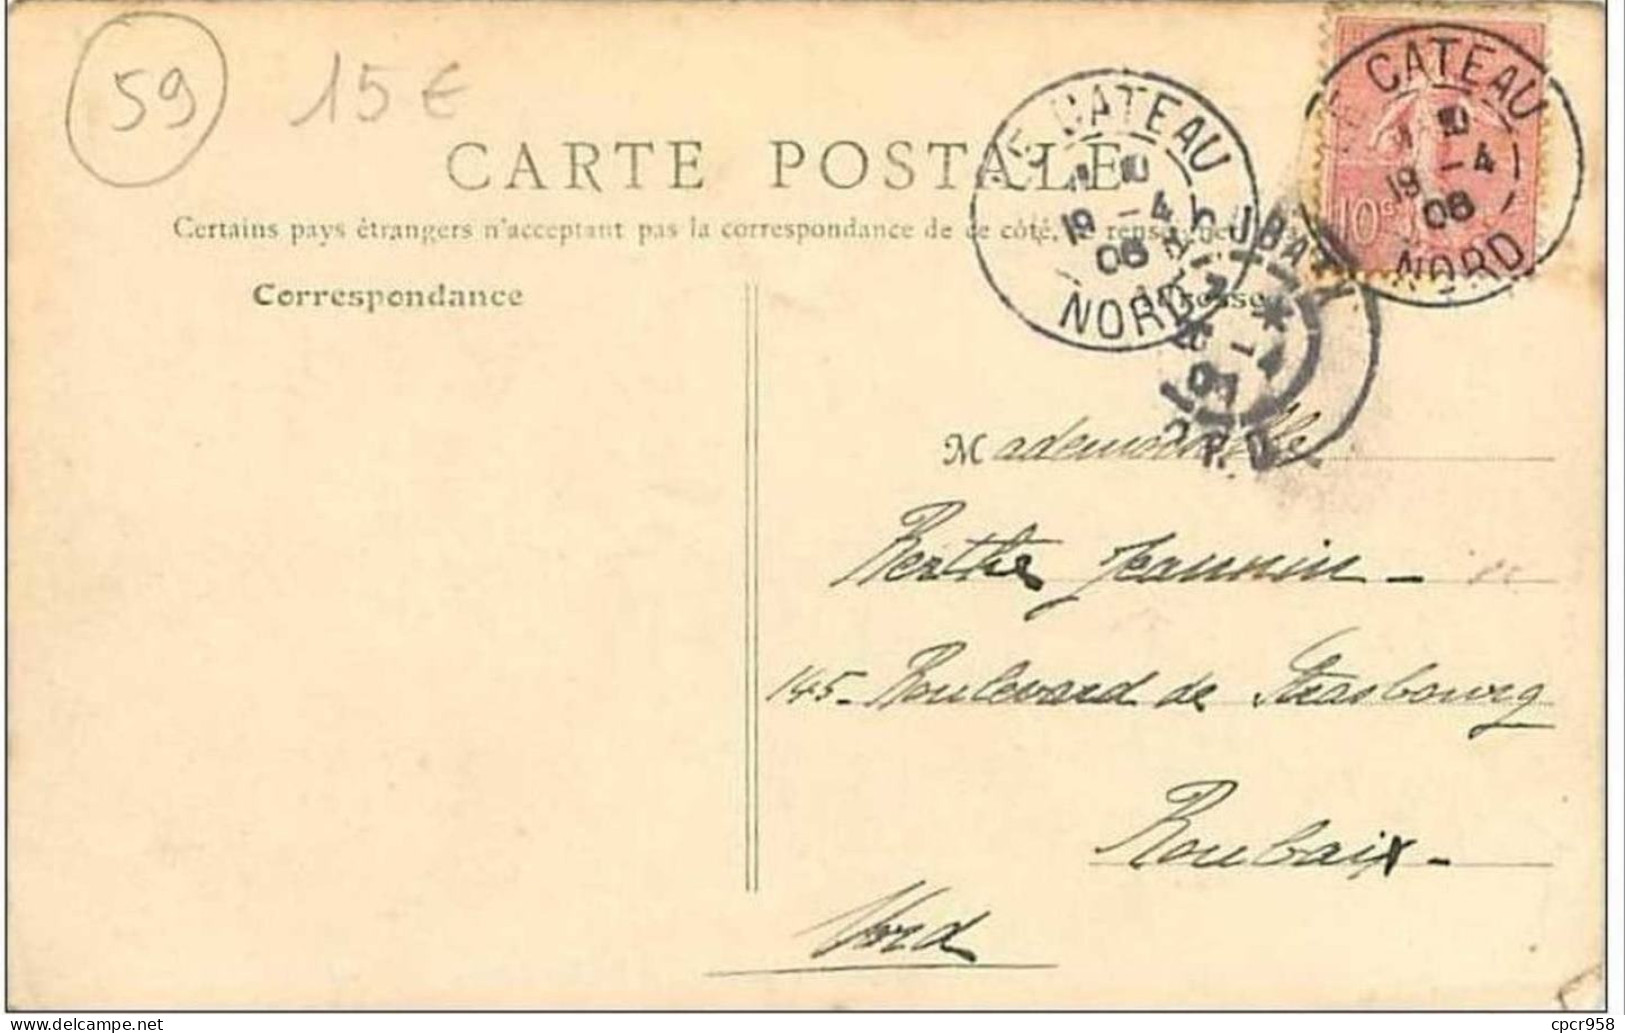 59 15€
CARTE POSTALE
Certains pays étrangers n'acceptent pas la correspondance de ce côté, se
Correspondance
Adresse
LE CATEAU
19 - 4
06
NORD
LE CATEAU
19 - 4
06
NORD
10c
Mademoiselle
Berthe Jeannin -
145 - Boulevard de Strasbourg
Roubaix -
Nord
cpcr958